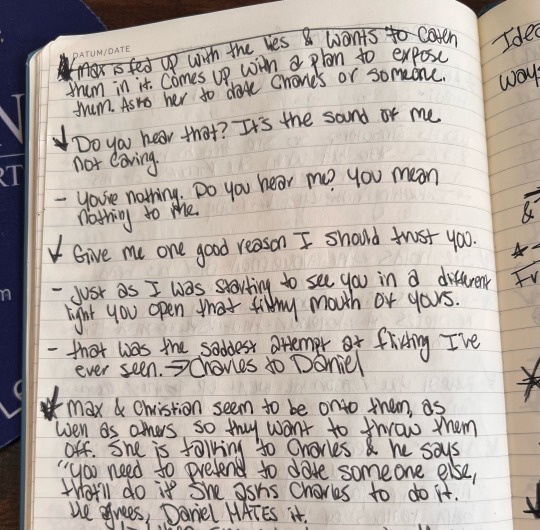 DATUM/DATE
Max is fed up with the lies & wants to catch
them in it. Comes up with a plan to expose
them. Asks her to date Charles or someone.
Do you hear that? It's the sound of me
not caring.
- You're nothing. Do you hear me? You mean
nothing to me.
Give me one good reason I should trust you.
- Just as I was starting to see you in a different
light you open that filthy mouth of yours.
- that was the saddest attempt at flirting I've
ever seen. → Charles to Daniel
Max & Christian seem to be onto them, as
well as others so they want to throw them
off. She is talking to Charles & he says
"you need to pretend to date someone else,
that'll do it" She asks Charles to do it.
He agrees, Daniel HATES it.
Idea
ways
&
Fr
N
RT
m